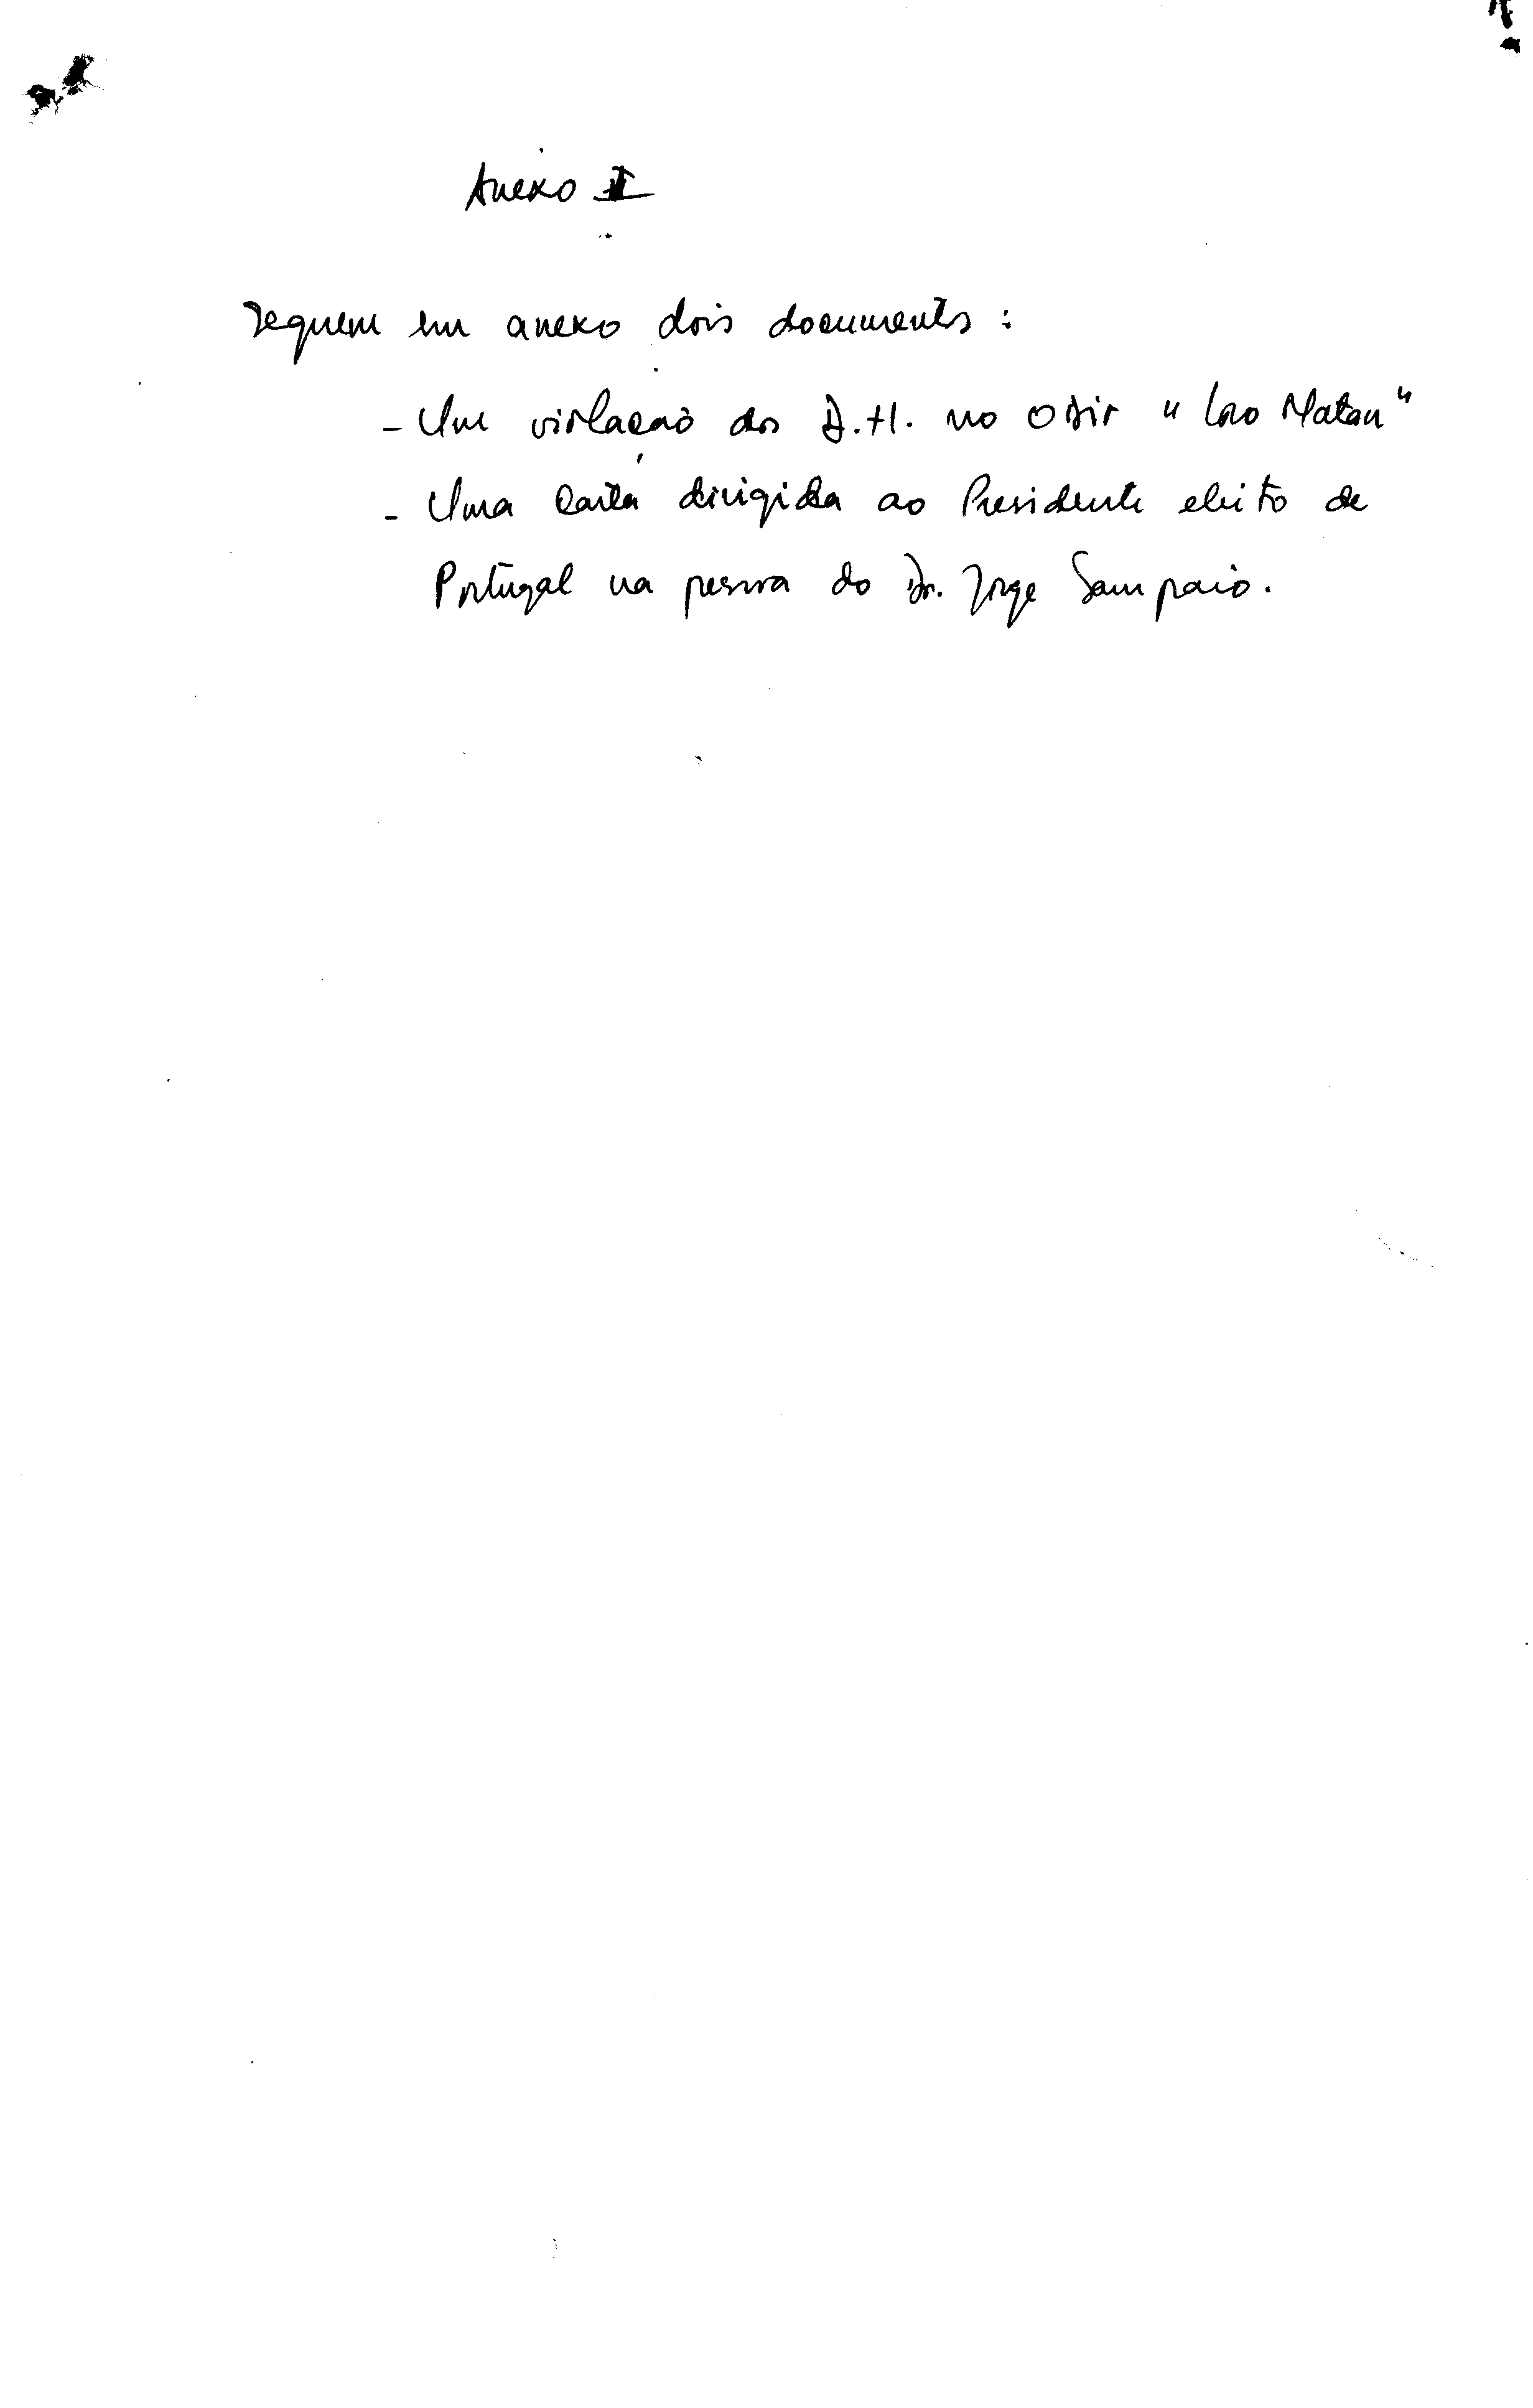 Anexo I
Seguem em anexo dois documentos :
- Um violação dos D.H. no "Loro Matan"
- Uma carta dirigida ao Presidente eleito de
Portugal na pessoa do Dr. Jorge Sampaio.